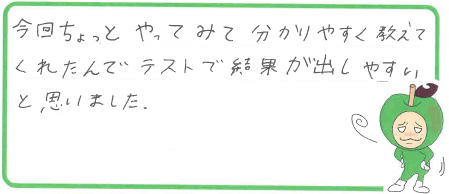 今回ちょっと やってみて 分かりやすく 教えて
くれたんで テストで 結果が 出しやすい
と思いました.